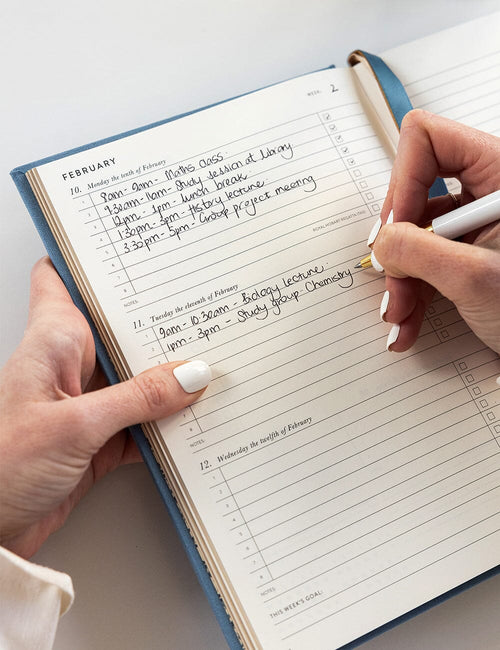 WEEK: 2
FEBRUARY
10. Monday the tenth of February
1 8am - 9am - Maths class.
2 9:30am - 11am - Study session at library
3 12pm - 1pm - lunch break
4 1:30pm - 3pm - History lecture.
5 3:30pm - 5pm - Group project meeting
6
7
8
ROYAL HOBART REGATTA (TAS)
NOTES:
11. Tuesday the eleventh of February
1 9am - 10:30am - Biology lecture.
2 1pm - 3pm - Study group Chemistry
3
4
NOTES:
12. Wednesday the twelfth of February
1
2
3
4
5
6
7
8
NOTES:
THIS WEEK'S GOAL: